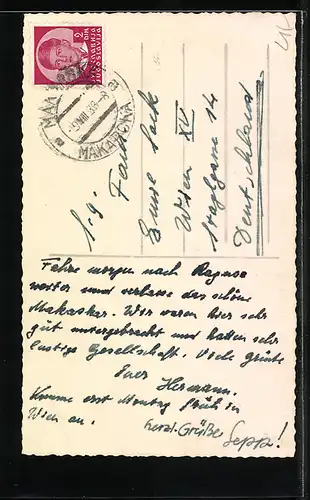 2
DIN
ЈУГОСЛАВИЈА
JUGOSLAVIJA
МАКАРСКА
-9.VIII.38-8
a a
MAKARSKA
S. g.
Familie
Emil Sack
Wien XV
14
Deutschland
Fahre morgen nach Ragusa
weiter und verlasse das schöne
Makarska. Wir waren hier sehr
gut untergebracht und hatten sehr
lustige Gesellschaft. Viele Grüße
Euer Hermann.
Komme erst Montag früh in
Wien an.
herzl. Grüße Sepp!